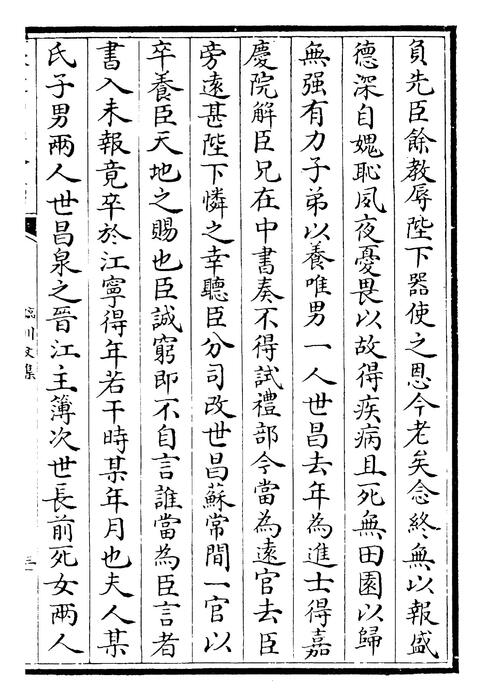 負先臣餘教辱陛下器使之恩今老矣念終無以報盛
德深自媿恥夙夜憂畏以故得疾病且死無田園以歸
無强有力子弟以養唯男一人世昌去年為進士得嘉
慶院解臣兄在中書奏不得試禮部今當為遠官去臣
旁遠甚陛下憐之幸聽臣分司改世昌蘇常間一官以
卒養臣天地之賜也臣誠窮即不自言誰當為臣言者
書入未報竟卒於江寧得年若干時某年月也夫人某
氏子男兩人世昌泉之晉江主簿次世長前死女兩人
臨川文集
三